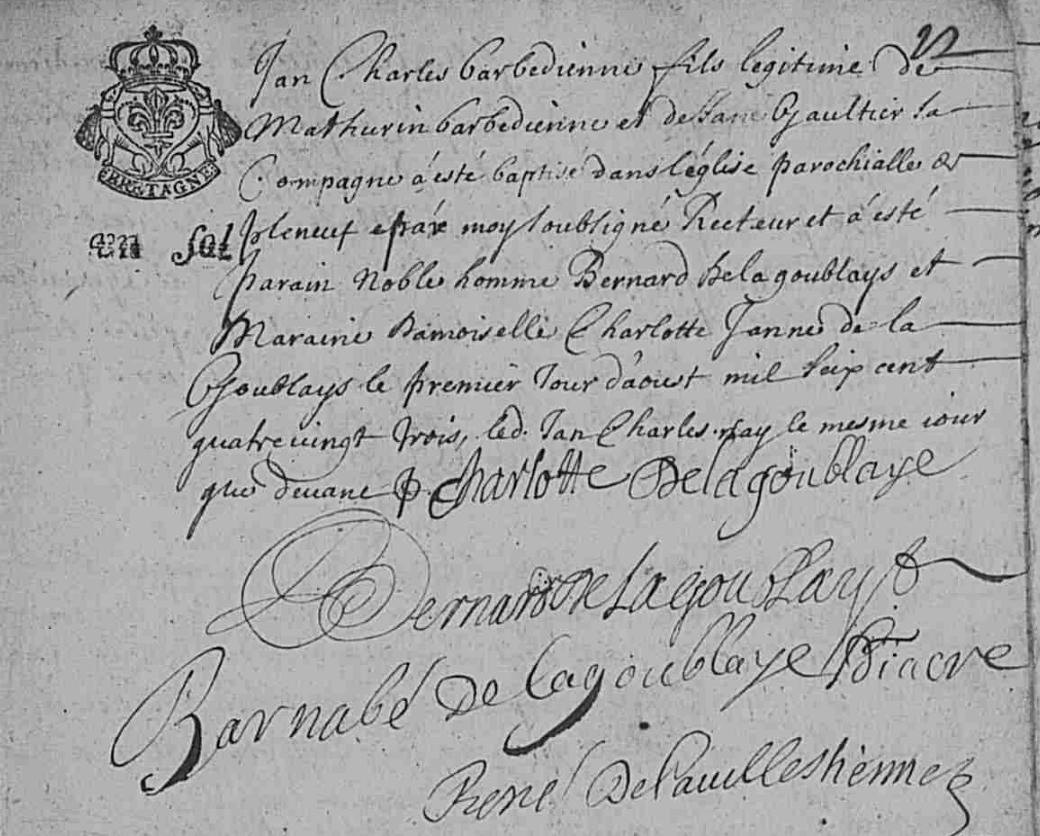 BRETAGNE
Jan Charles barbedienne fils legitime de
Mathurin barbedienne et de Jane Gaultier sa
Compagne á esté baptisé dans l'église parochialle de
sol
pleneuf par moy soubsigné Recteur et á esté
parain Noble homme Bernard De la goublays et
Maraine Damoiselle Charlotte Janne de la
Goublays le premier Jour d'aoust mil seix cent
quatre vingt trois, led. Jan Charles nay le mesme iour
que devant Charlotte De la goublaye
Bernard De La goublays
Barnabé De lagoublaye
René De la villeshenne